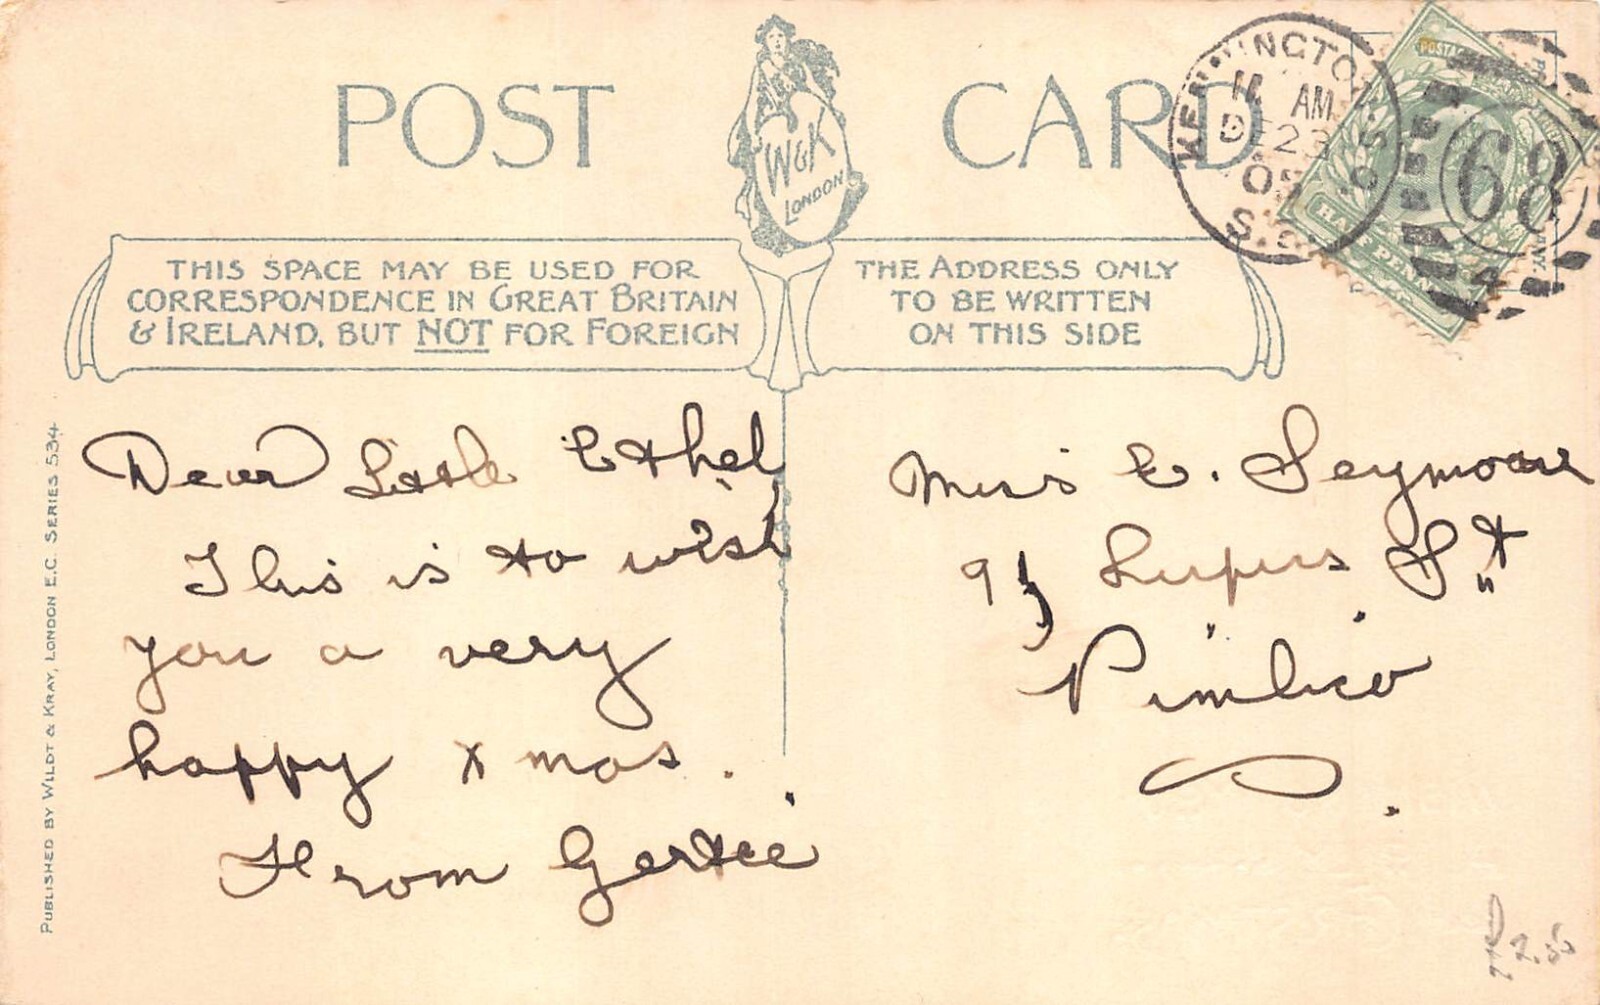 POST CARD
W&K
LONDON
KENNINGTON S.O.
11 AM
DE 23
05
S.E.
68
4
POSTAGE
HALF PENNY
THIS SPACE MAY BE USED FOR
CORRESPONDENCE IN GREAT BRITAIN
& IRELAND, BUT NOT FOR FOREIGN
THE ADDRESS ONLY
TO BE WRITTEN
ON THIS SIDE
PUBLISHED BY WILDT & KRAY, LONDON E.C. SERIES 534.
Dear Little Ethel
This is to wish
you a very
happy Xmas.
From Gertie
Miss E. Seymour
Lupus St
Pimlico